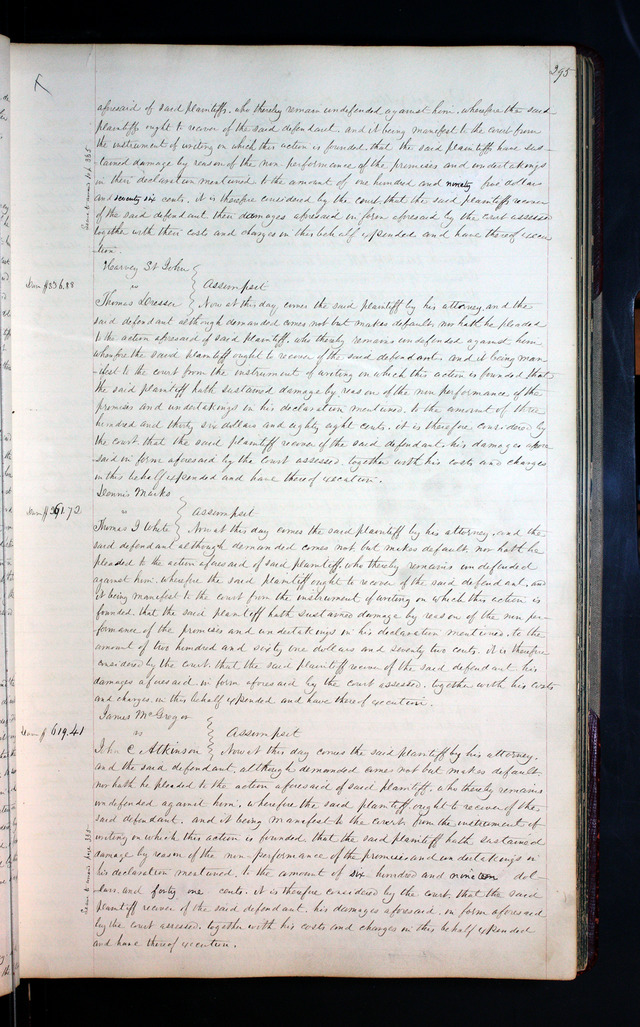 295
aforesaid of said plaintiffs, who thereby remain undefended against him, wherefore the said
plaintiffs ought to recover of the said defendant, and it being manifest to the court from
the instrument of writing on which this action is founded, that the said plaintiffs have sus-
tained damage by reason of the non performance of the promises and undertakings
in their declaration mentioned to the amount of one hundred and ninety five dollars
and seventy six cents, it is therefore considered by the court, that the said plaintiffs recover
of the said defendant their damages aforesaid in form aforesaid by the court assessed
together with their costs and charges in this behalf expended and have thereof execu-
tion.
Harvey St John
vs
Assumpsit
$336.88
Thomas Dresser Now at this day comes the said plaintiff by his attorney, and the
said defendant although demanded comes not but makes default, nor hath he pleaded
to the action aforesaid of said plaintiff, who thereby remains undefended against him
wherefore the said plaintiff ought to recover of the said defendant, and it being man-
ifest to the court from the instrument of writing on which this action is founded that
the said plaintiff hath sustained damage by reason of the non performance of the
promises and undertakings in his declaration mentioned to the amount of three
hundred and thirty six dollars and eighty eight cents, it is therefore considered by
the court, that the said plaintiff recover of the said defendant, his damages afore-
said in form aforesaid by the court assessed, together with his costs and charges
in this behalf expended and have thereof execution.
Dennis Marks
vs
Assumpsit
$261.72
Thomas J White Now at this day comes the said plaintiff by his attorney, and the
said defendant although demanded comes not but makes default nor hath he
pleaded to the action aforesaid of said plaintiff, who thereby remains undefended
against him, wherefore the said plaintiff ought to recover of the said defendant, and
it being manifest to the court from the instrument of writing on which this action is
founded, that the said plaintiff hath sustained damage by reason of the non per-
formance of the promises and undertakings in his declaration mentioned, to the
amount of two hundred and sixty one dollars and seventy two cents, it is therefore
considered by the court, that the said plaintiff recover of the said defendant his
damages aforesaid in form aforesaid by the court assessed, together with his costs
and charges in this behalf expended and have thereof execution.
James McGregor
vs
Assumpsit
$619.41
John C Atkinson Now at this day comes the said plaintiff by his attorney,
and the said defendant, although demanded comes not but makes default
nor hath he pleaded to the action aforesaid of said plaintiff, who thereby remains
undefended against him, wherefore the said plaintiff ought to recover of the
said defendant, and it being manifest to the court from the instrument of
writing on which this action is founded that the said plaintiff hath sustained
damage by reason of the non-performance of the promises and undertakings in
his declaration mentioned, to the amount of six hundred and nineteen dol-
lars and forty one cents, it is therefore considered by the court, that the said
plaintiff recover of the said defendant, his damages aforesaid, in form aforesaid
by the court assessed, together with his costs and charges in this behalf expended
and have thereof execution.